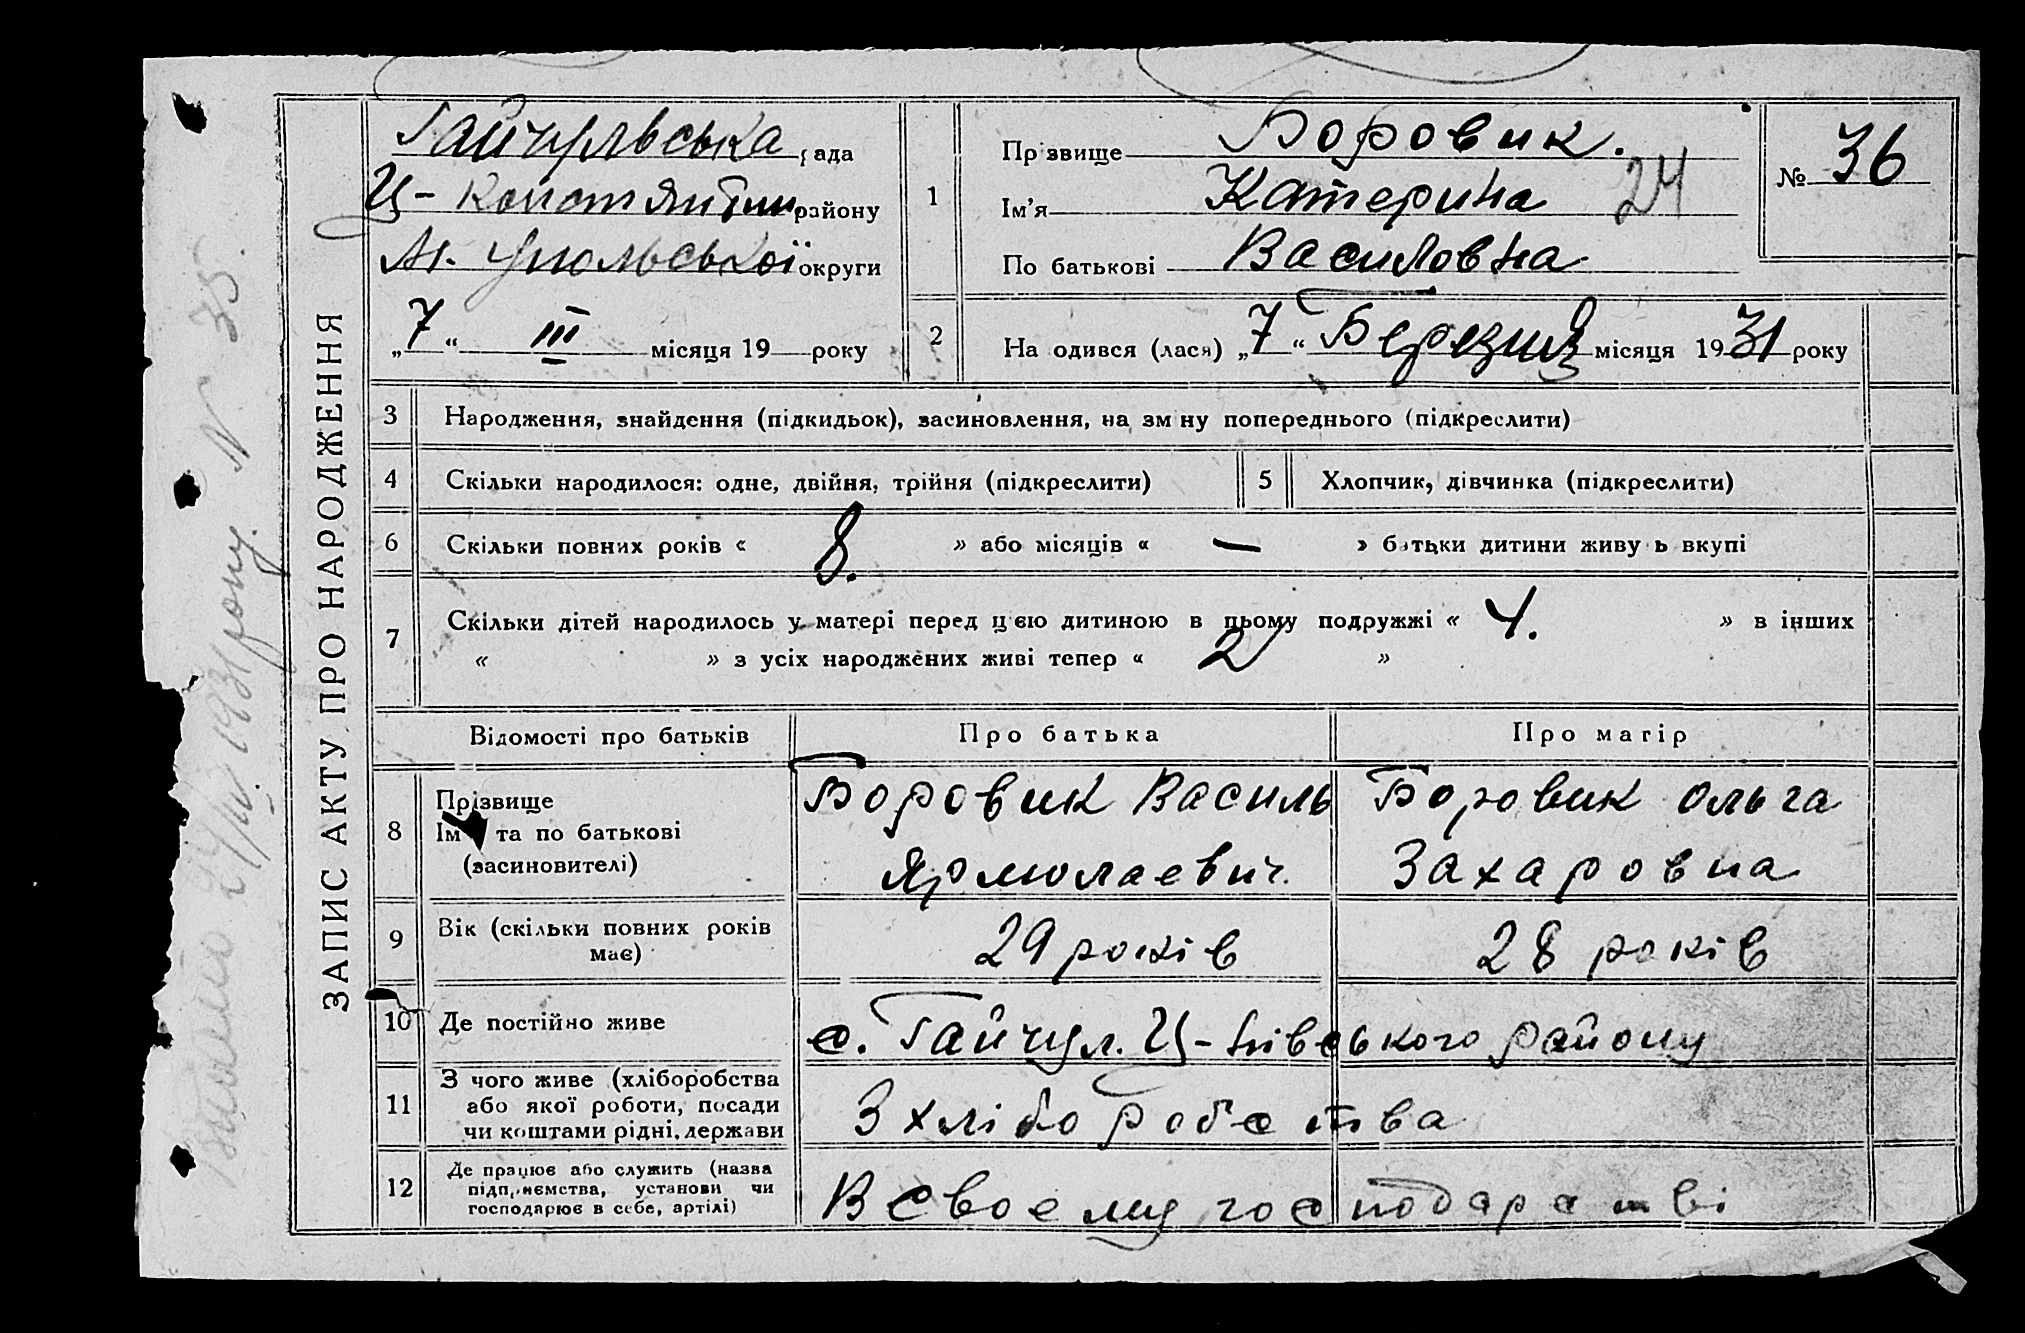 ЗАПИС АКТУ ПРО НАРОДЖЕННЯ
Гайчульська рада
Ц-Константин району
М. упольської округи
„7“ III місяця 19 року
1
Прізвище Боровик.
Ім'я Катерина 24
По батькові Василовна
№ 36
2
На одився (лася) „7“ Березня місяця 1931 року
3 Народження, знайдення (підкидьок), засиновлення, на зм ну попереднього (підкреслити)
4 Скільки народилося: одне, двійня, трійня (підкреслити)
5 Хлопчик, дівчинка (підкреслити)
6 Скільки повних років « 8. » або місяців « — » батьки дитини живу ь вкупі
7 Скільки дітей народилось у матері перед цією дитиною в цьому подружжі « 4. » в інших
« » з усіх народжених живі тепер « 2 »
Відомості про батьків Про батька Про матір
8 Прізвище
Ім та по батькові
(засиновителі)
Боровик Василь
Ярмолаевич.
Боровик Ольга
Захаровна
9 Вік (скільки повних років
має)
29 років
28 років
10 Де постійно живе
с. Гайчул. Ц- району
11 З чого живе (хліборобства
або якої роботи, посади
чи коштами рідні, держави
З хліборобства
12 Де працює або служить (назва
підприємства, установи чи
господарює в себе, артілі)
В своему господарстві
N 35.
1931 року.